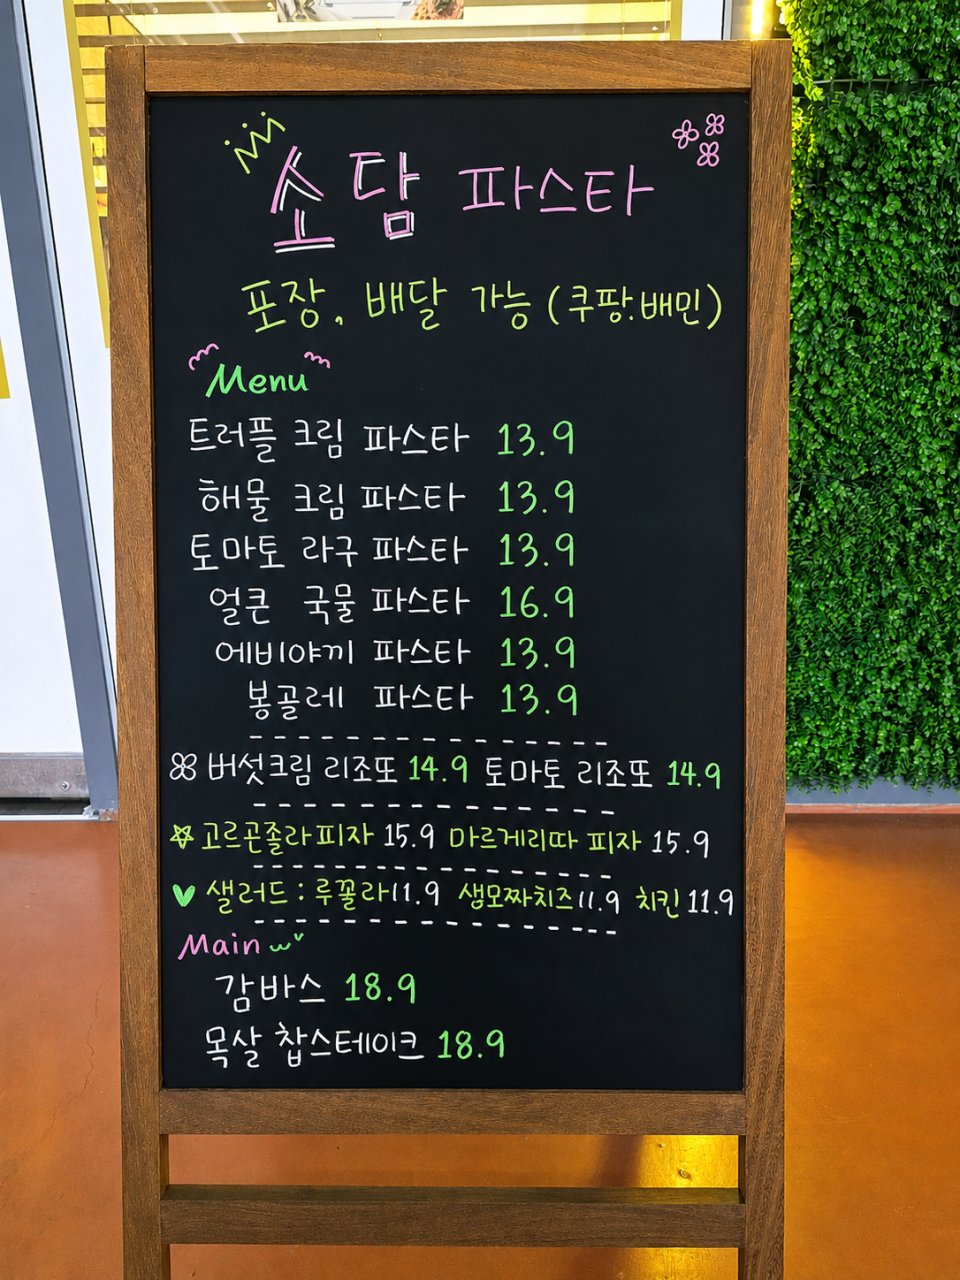 소담 파스타
포장, 배달 가능 (쿠팡.배민)
Menu
트러플 크림 파스타 13.9
해물 크림 파스타 13.9
토마토 라구 파스타 13.9
얼큰 국물 파스타 16.9
에비야끼 파스타 13.9
봉골레 파스타 13.9
버섯크림 리조또 14.9 토마토 리조또 14.9
고르곤졸라피자 15.9 마르게리따 피자 15.9
샐러드 : 루꼴라 11.9 생모짜치즈 11.9 치킨 11.9
Main
감바스 18.9
목살 찹스테이크 18.9